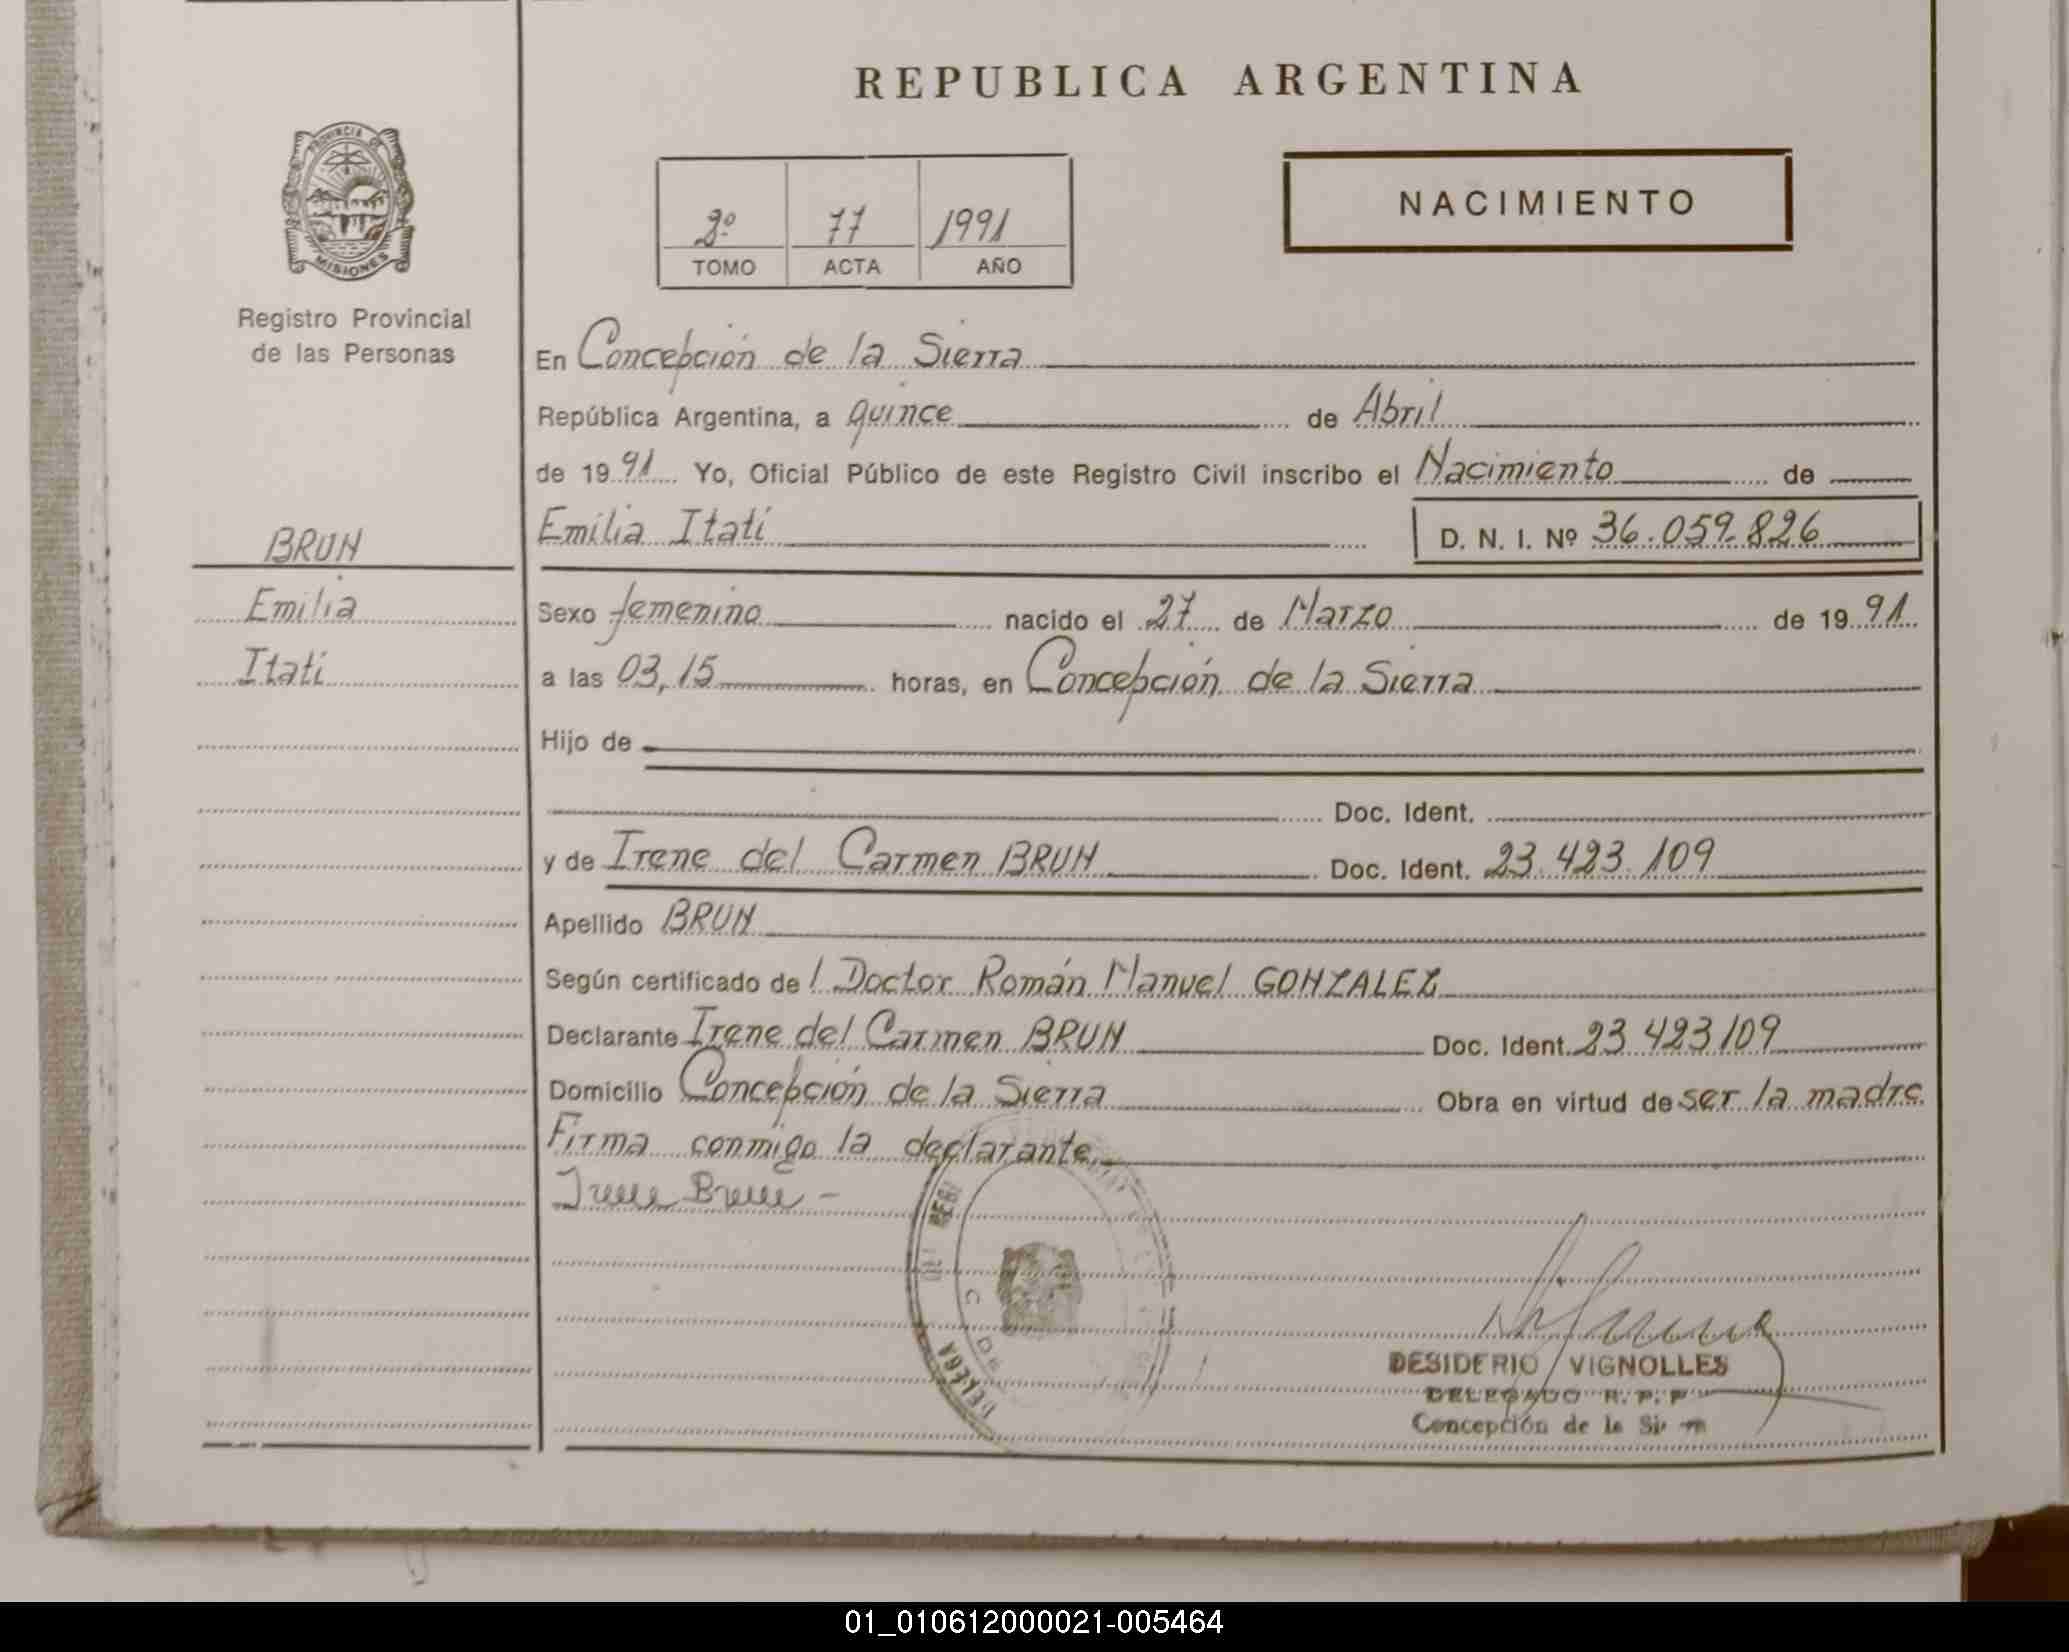 REPUBLICA ARGENTINA
PROVINCIA DE
MISIONES
Registro Provincial
de las Personas
2º 77 1991
TOMO ACTA AÑO
NACIMIENTO
En Concepción de la Sierra
República Argentina, a quince de Abril
de 1991 Yo, Oficial Público de este Registro Civil inscribo el Nacimiento de
Emilia Itatí D. N. I. Nº 36.059.826
BRUN
Emilia
Itatí
Sexo femenino nacido el 27 de Marzo de 1991
a las 03,15 horas, en Concepción de la Sierra
Hijo de
Doc. Ident.
y de Irene del Carmen BRUN Doc. Ident. 23.423.109
Apellido BRUN
Según certificado del Doctor Román Manuel GONZALEZ
Declarante Irene del Carmen BRUN Doc. Ident. 23 423109
Domicilio Concepción de la Sierra Obra en virtud de ser la madre
Firma conmigo la declarante
Irene Brun -
DESIDERIO VIGNOLLES
DELEGADO R. P. P
Concepción de la
01_010612000021-005464